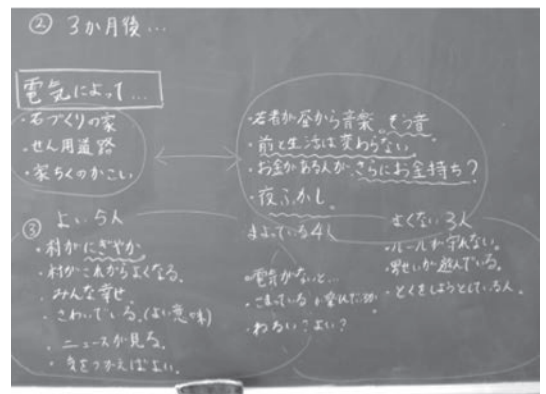 ② 3か月後…
電気によって…
・石づくりの家
・せん用道路
・家ちくのかこい
・若者が昼から音楽。そう音
・前と生活は変わらない
・お金がある人が、さらにお金持ち?
・夜ふかし。
③ よい5人
・村がにぎやか
・村がこれからよくなる。
・みんな幸せ。
・さわいでいる。(よい意味)
・ニュースが見る。
・気をつかえばよい。
まよっている4人
・電気がないと…
・こまっている
・わるい?よい?
よくない3人
・ルールが守れない。
・男せいが遊んでいる。
・とくをしようとしている人。